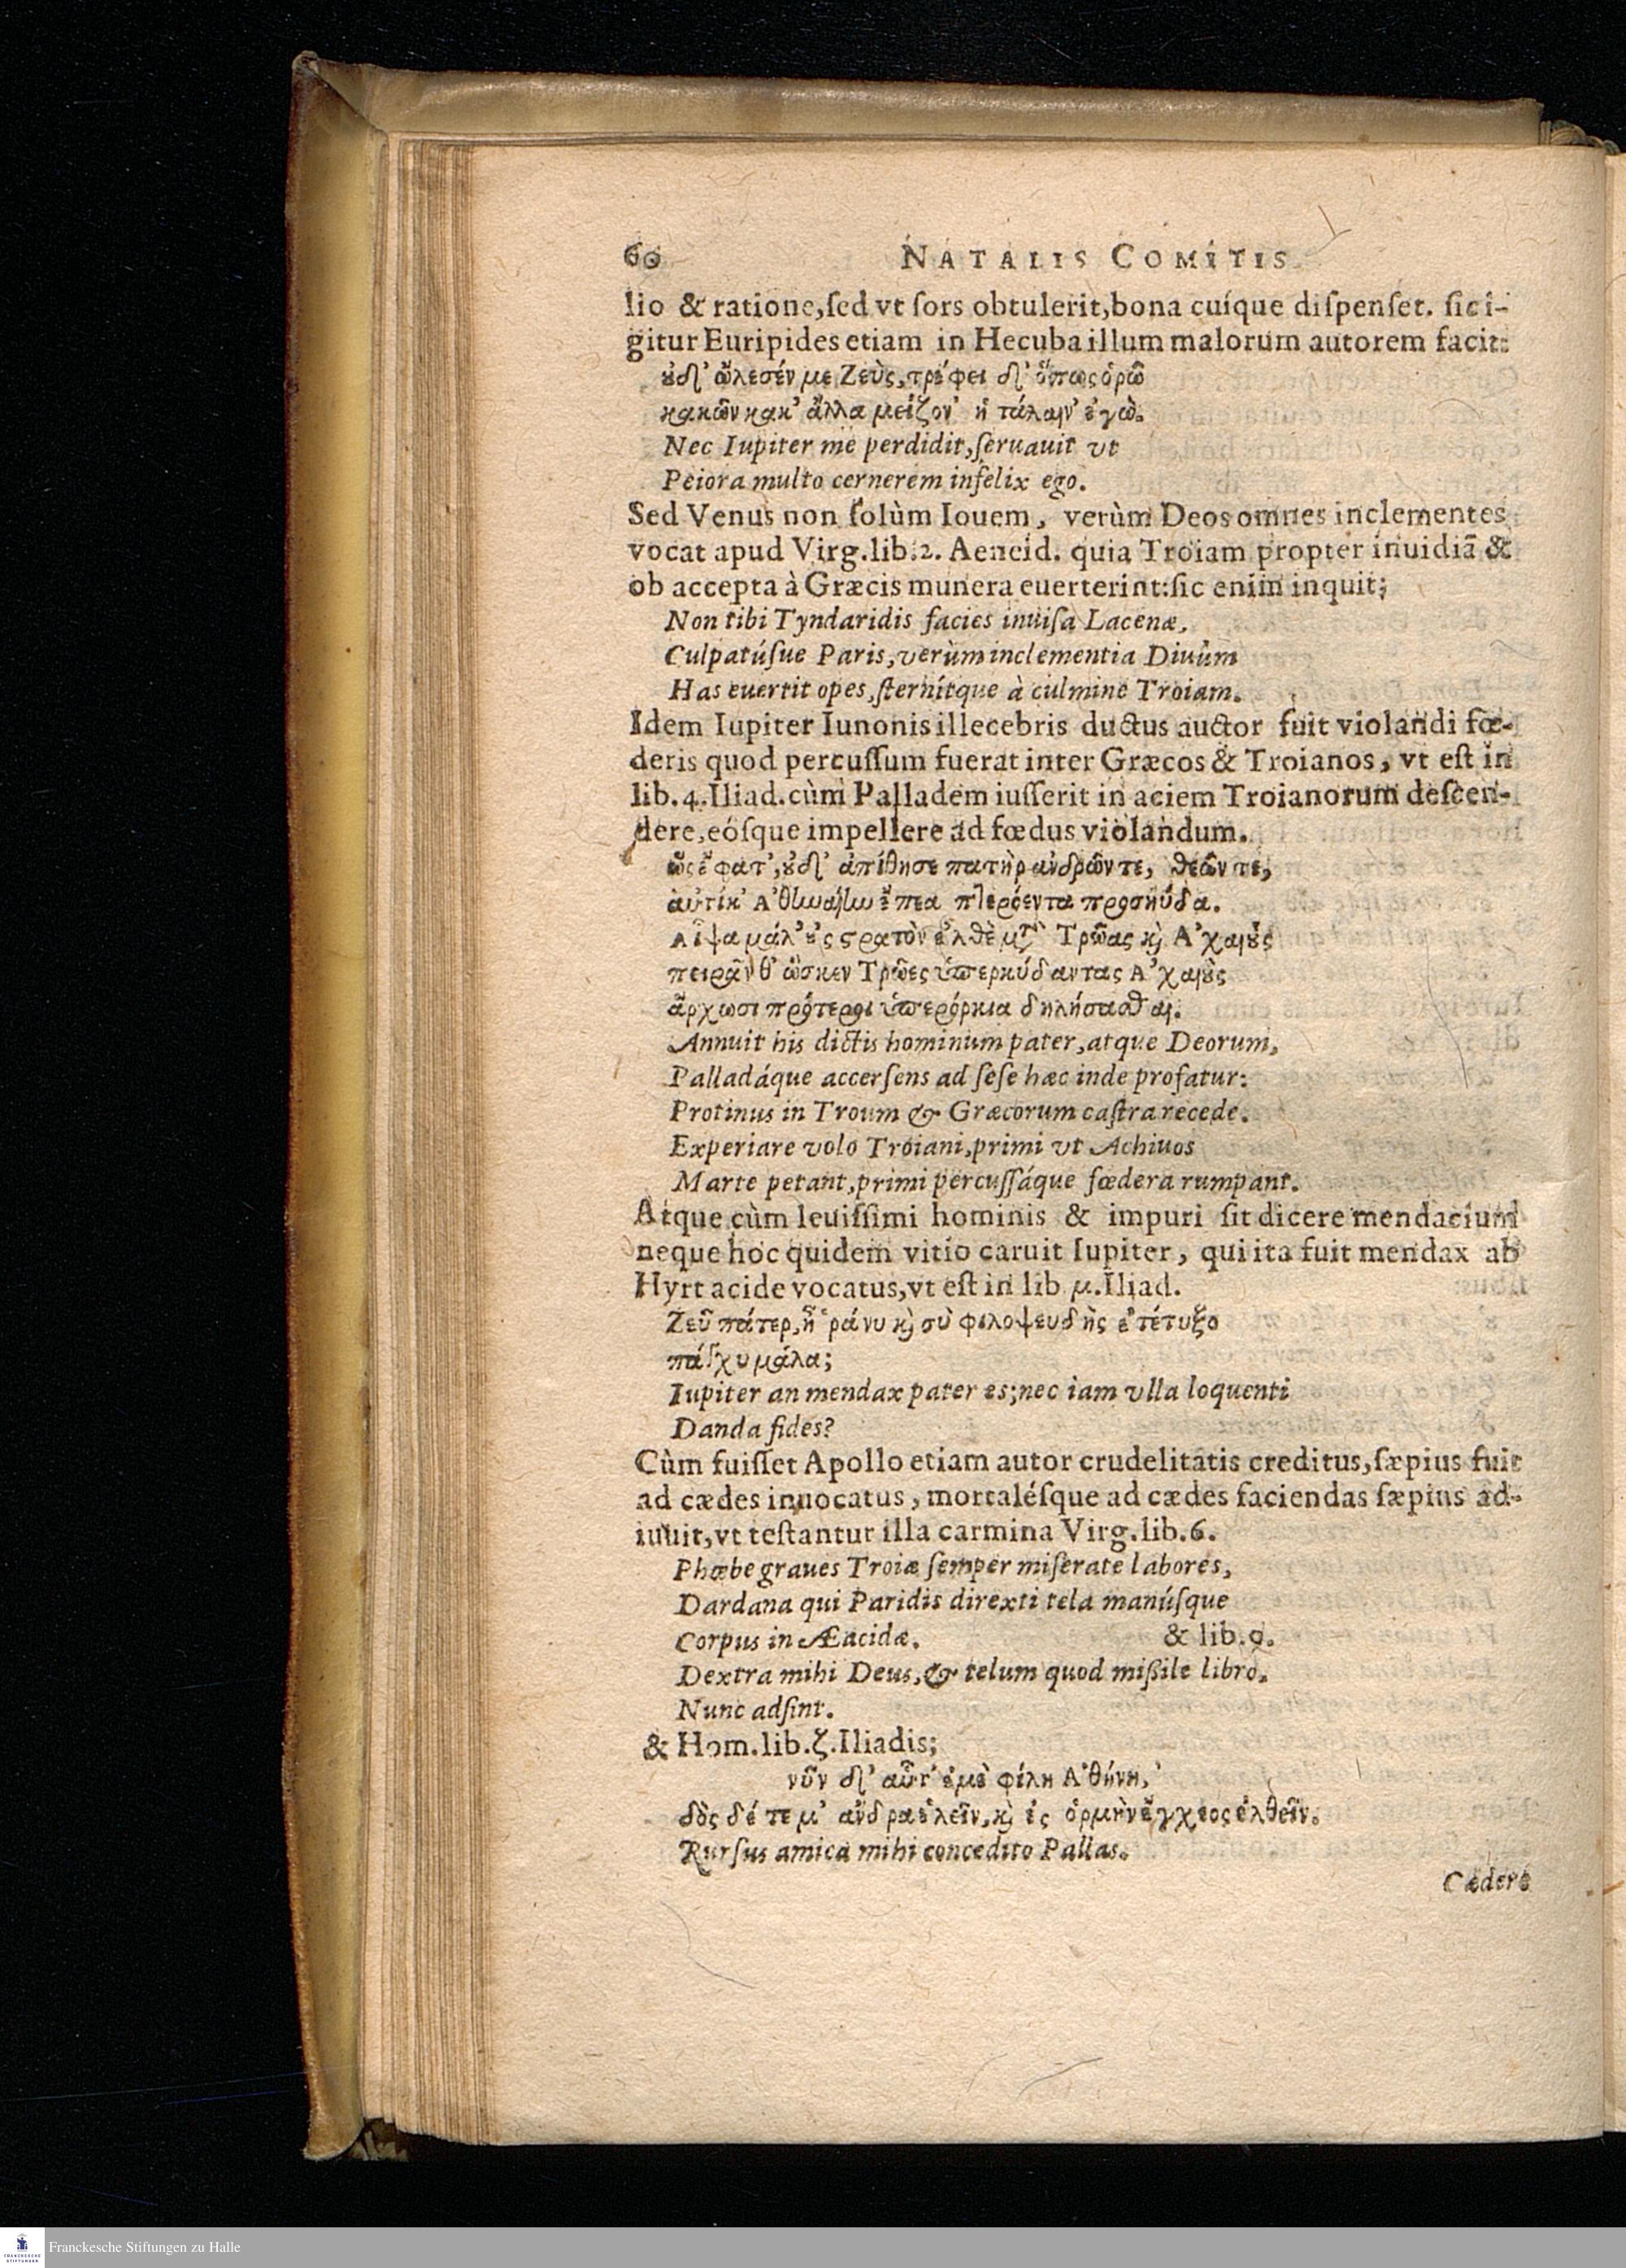 60 NATALIS COMITIS
lio & ratione,ſed vt ſors obtulerit,bona cuíque diſpenſet. ſic i-
gitur Euripides etiam in Hecuba illum malorum autorem facit:
ȣδ' ὤλεσέν με Ζεὺς,τρέφει δ' ὅπως ὁρῶ
κακῶν κακ' ἄλλα μείζον' ἡ τάλαιν' ἐγώ.
Nec Iupiter me perdidit,ſeruauit vt
Peiora multo cernerem infelix ego.
Sed Venus non ſolùm Iouem, verùm Deos omnes inclementes
vocat apud Virg.lib.2. Aeneid. quia Troiam propter inuidiā &
ob accepta à Græcis munera euerterint:ſic enim inquit;
Non tibi Tyndaridis facies inuiſa Lacenæ,
Culpatúſue Paris,verùm inclementia Diuûm
Has euertit opes,ſternítque à culmine Troiam.
Idem Iupiter Iunonis illecebris ductus auctor fuit violandi fœ-
deris quod percuſſum fuerat inter Græcos & Troianos, vt eſt in
lib.4.Iliad.cùm Palladem iuſſerit in aciem Troianorum deſcen-
dere,eóſque impellere ad fœdus violandum.
ὣς ἔφατ',ȣδ' ἀπίθησε πατὴρ ἀνδρῶν τε, θεῶν τε,
αὐτίκ' Ἀθηναίην ἔπεα πτερόεντα προσηύδα.
Αἶψα μάλ' ἐς στρατὸν ἐλθὲ μετὰ Τρῶας ϗ Ἀχαιȣ́ς
πειρᾶν θ' ὥς κεν Τρῶες ὑπερκύδαντας Ἀχαιȣ̀ς
ἄρχωσι πρότεροι ὑπερόρκια δηλήσασθαι.
Annuit his dictis hominum pater,atque Deorum,
Palladáque accerſens ad ſeſe hæc inde profatur:
Protinus in Troum & Græcorum caſtra recede.
Experiare volo Troiani,primi vt Achiuos
Marte petant,primi percuſſáque fœdera rumpant.
Atque cùm leuiſſimi hominis & impuri ſit dicere mendacium
neque hoc quidem vitio caruit Iupiter, qui ita fuit mendax ab
Hyrtacide vocatus,vt eſt in lib μ.Iliad.
Ζεῦ πάτερ,ἦ ῥά νυ ϗ σὺ φιλοψευδὴς ἐτέτυξο
πάγχυ μάλα;
Iupiter an mendax pater es;nec iam vlla loquenti
Danda fides?
Cùm fuiſſet Apollo etiam autor crudelitatis creditus,ſæpius fuit
ad cædes inuocatus, mortaléſque ad cædes faciendas ſæpius ad-
iuuit,vt teſtantur illa carmina Virg.lib.6.
Phœbe graues Troiæ ſemper miſerate labores,
Dardana qui Paridis direxti tela manúſque
Corpus in Æacidæ. & lib.9.
Dextra mihi Deus,& telum quod miſsile libro.
Nunc adſint.
& Hom.lib.ζ.Iliadis;
νῦν δ' αὖτ' ἐμὲ φίλη Ἀθήνη,
δὸς δέ τε μ' ἄνδρα ἑλεῖν,ϗ ἐς ὁρμὴν ἔγχεος ἐλθεῖν.
Rurſus amica mihi concedito Pallas.
Cædere
Franckesche Stiftungen zu Halle
FRANCKESCHE
STIFTUNGEN